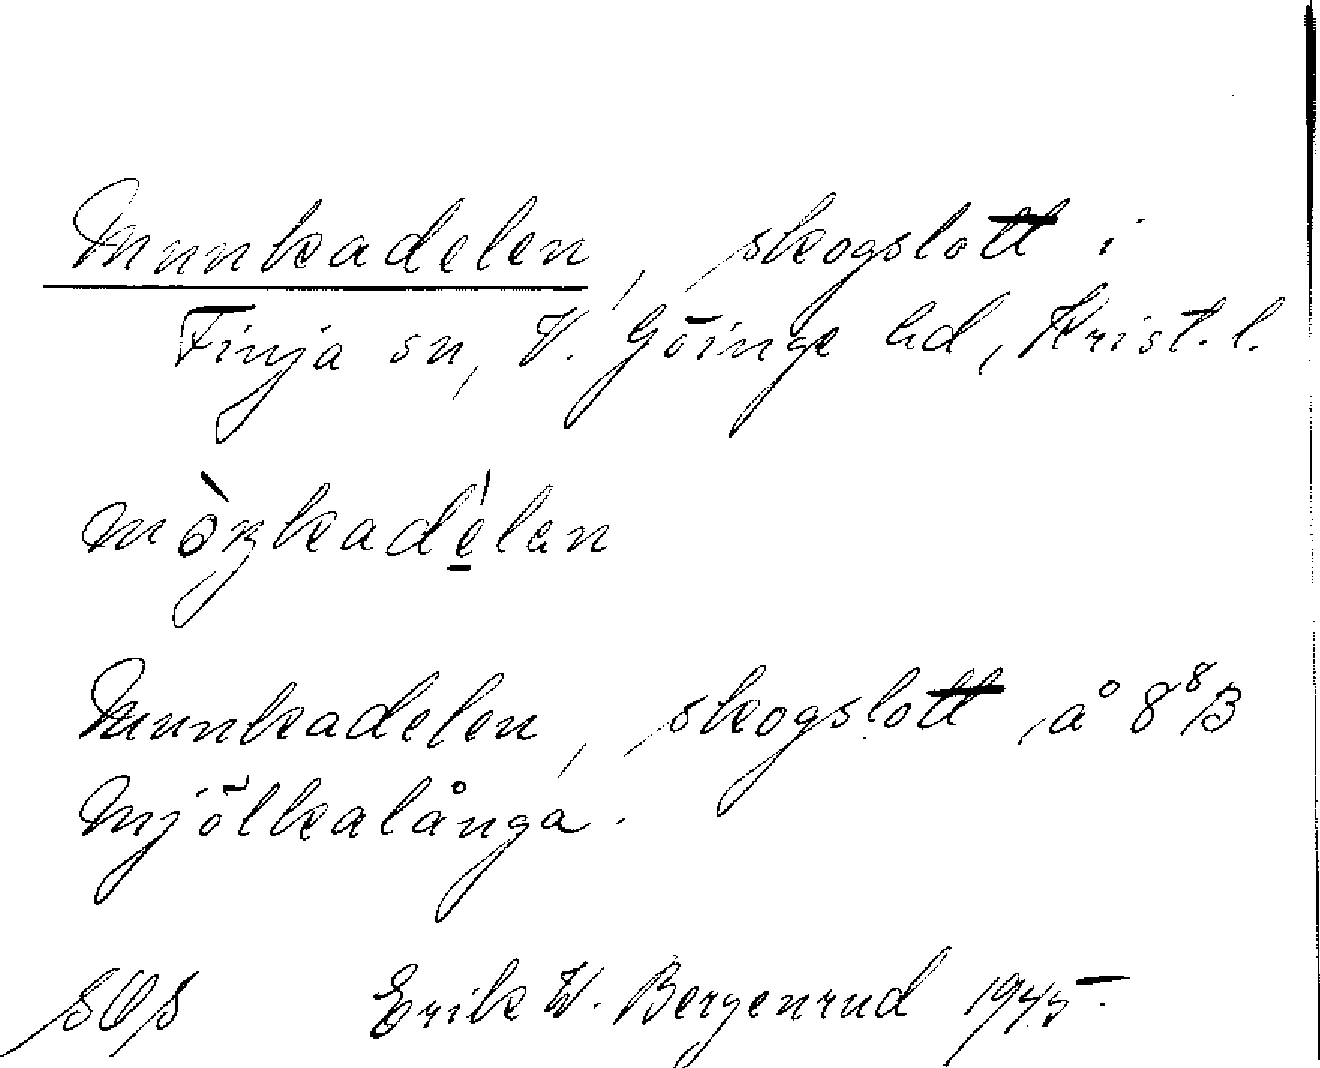 Munkadelen, skogslott i
Finja sn, V. Göinge hd, Krist. l.
mòŋkadélen
Munkadelen, skogslott å 8⁸B
Mjölkalånga.
Erik W. Bergenrud 1945.